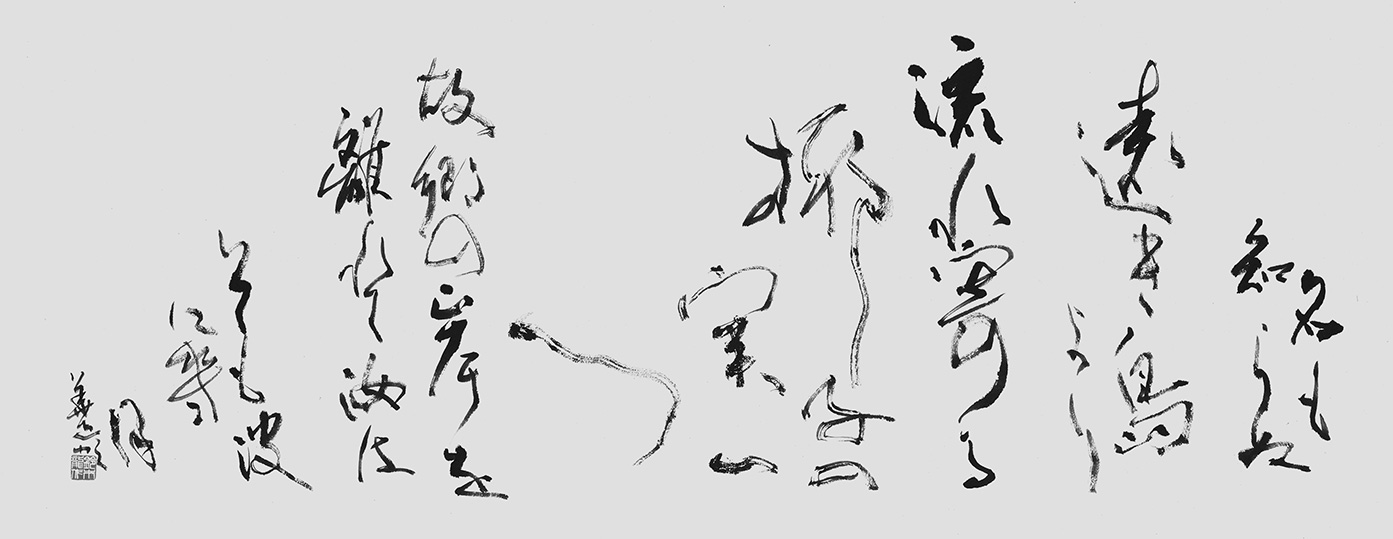 名も
知らぬ
遠き島
より
流れ寄る
椰子の
実一
つ
故郷の岸を
離れて汝は
そも波
に幾
月